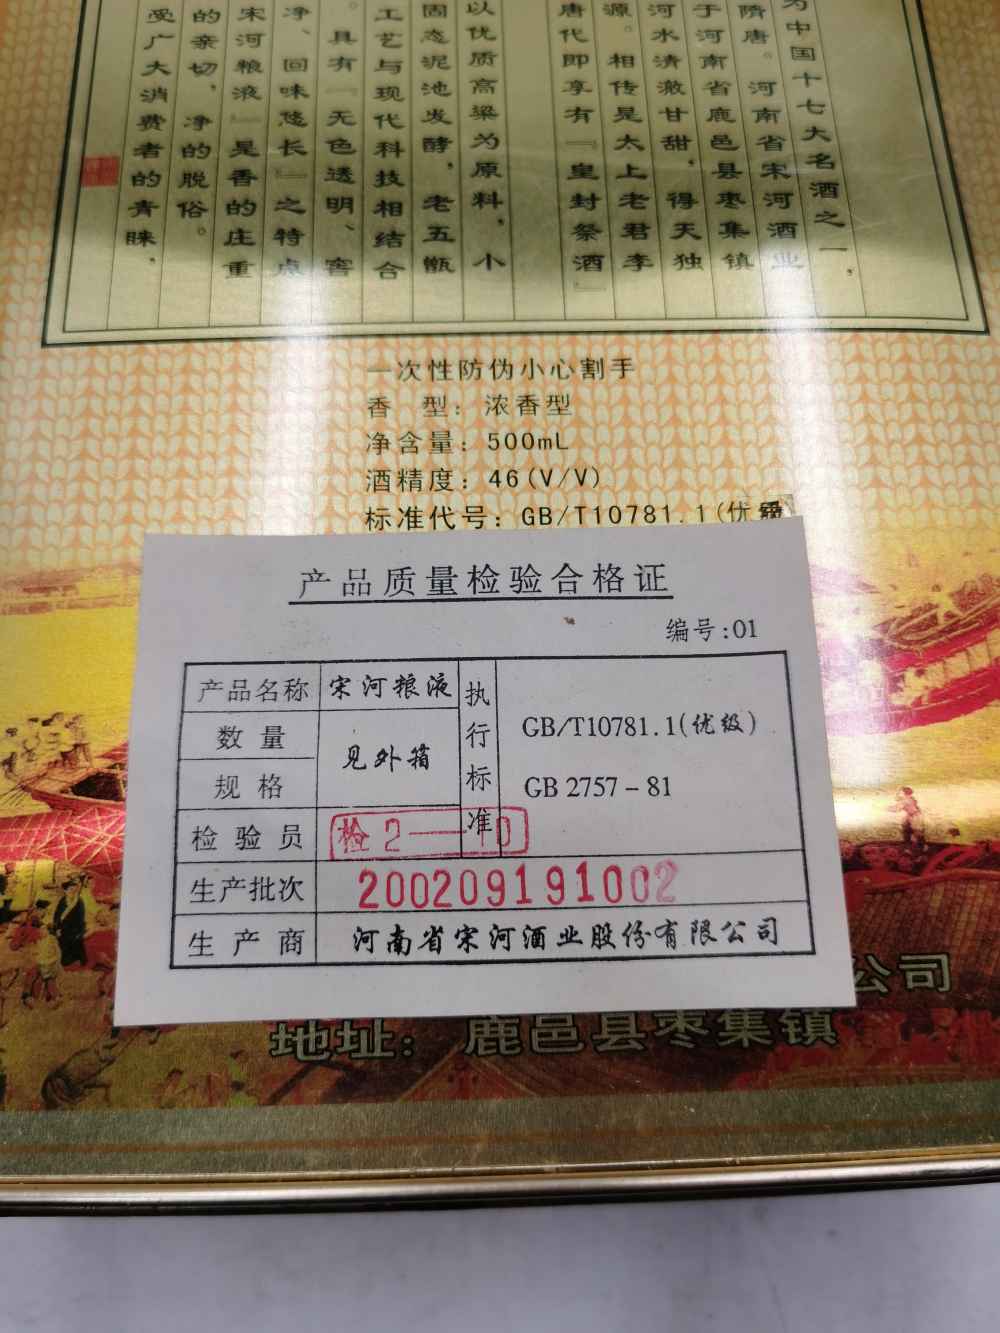 为中国十七大名酒之一，
隋唐。河南省宋河酒业
于河南省鹿邑县枣集镇
河水清澈甘甜，得天独
源。相传是太上老君李
唐代即享有『皇封祭酒』
以优质高粱为原料，小
固态泥池发酵，老五甑
工艺与现代科技相结合
。具有『无色透明、窖
净、回味悠长』之特点
宋河粮液』是香的庄重
的亲切，净的脱俗。
受广大消费者的青睐，
一次性防伪小心割手
香 型：浓香型
净含量：500mL
酒精度：46(V/V)
标准代号：GB/T10781.1(优
产品质量检验合格证
编号:01
产品名称 宋河粮液
数量 见外箱
规格
执行标准
GB/T10781.1(优级)
GB 2757－81
检验员 检2—10
生产批次 200209191002
生产商 河南省宋河酒业股份有限公司
公司
地址：鹿邑县枣集镇